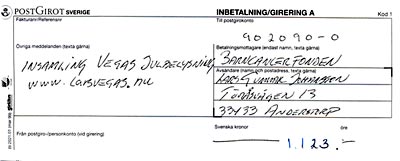 POSTGIROT SVERIGE
INBETALNING/GIRERING A
Kod 1
Fakturanr/Referensnr
Till postgirokonto
902090-0
Övriga meddelanden (texta gärna)
Betalningsmottagare (endast namn, texta gärna)
BARNCANCERFONDEN
INSAMLING VEGAS JULBELYSNING
WWW.LARSVEGAS.NU
Avsändare (namn och postadress, texta gärna)
LARS GUNNAR
13
33433 ANDERSTORP
Från postgiro-/personkonto (vid girering)
Svenska kronor
öre
1.123.-